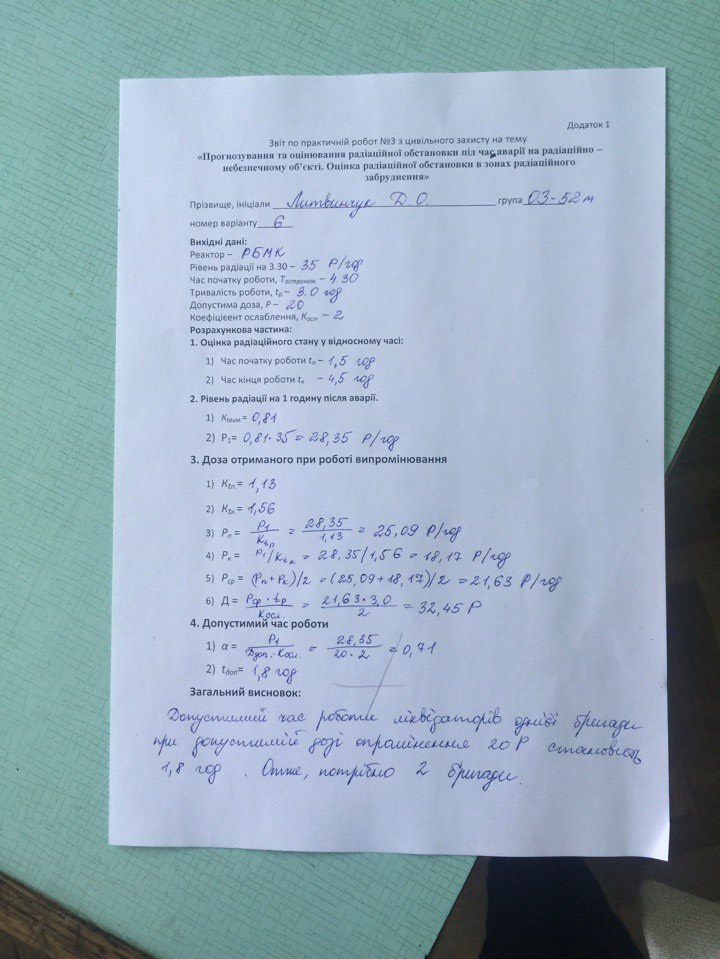 Додаток 1
Звіт по практичній робот №3 з цивільного захисту на тему
«Прогнозування та оцінювання радіаційної обстановки під час аварії на радіаційно –
небезпечному об’єкті. Оцінка радіаційної обстановки в зонах радіаційного
забруднення»
Прізвище, ініціали Литвинчук Д.О. група ОЗ-52м
номер варіанту 6
Вихідні дані:
Реактор – РБМК
Рівень радіації на 3.30 – 35 Р/год
Час початку роботи, Тастроном. – 4.30
Тривалість роботи, tр – 3.0 год
Допустима доза, Р – 20
Коефіцієнт ослаблення, Косл – 2
Розрахункова частина:
1. Оцінка радіаційного стану у відносному часі:
1) Час початку роботи tп – 1,5 год
2) Час кінця роботи tк – 4,5 год
2. Рівень радіації на 1 годину після аварії.
1) Ktвим.= 0,81
2) Р1= 0,81·35 = 28,35 Р/год
3. Доза отриманого при роботі випромінювання
1) Ktп.= 1,13
2) Ktк.= 1,56
3) Рп = Р1/Ktп = 28,35/1,13 = 25,09 Р/год
4) Рк = Р1/Ktк = 28,35/1,56 = 18,17 Р/год
5) Рср = (Рп+Рк)/2 = (25,09+18,17)/2 = 21,63 Р/год
6) Д = Рср·tр/Косл. = 21,63·3,0/2 = 32,45 Р
4. Допустимий час роботи
1) α = Р1/Ддоп.·Косл. = 28,35/20·2 = 0,71
2) tдоп= 1,8 год
Загальний висновок:
Допустимий час роботи ліквідаторів однієї бригади
при допустимій дозі опромінення 20 Р становить
1,8 год. Отже, потрібно 2 бригади.